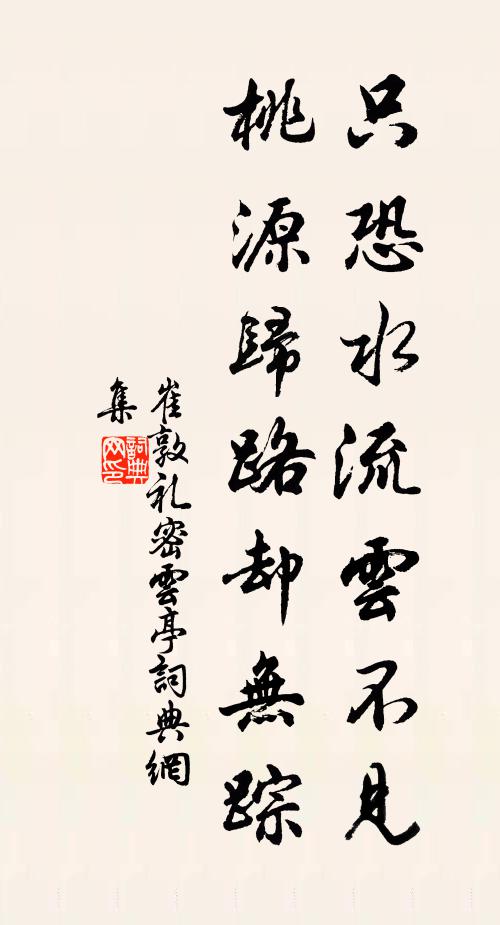 只恐水流雲不見
桃源歸路却無踪
崔敦礼密雲亭詞典網
集
詞典
网印